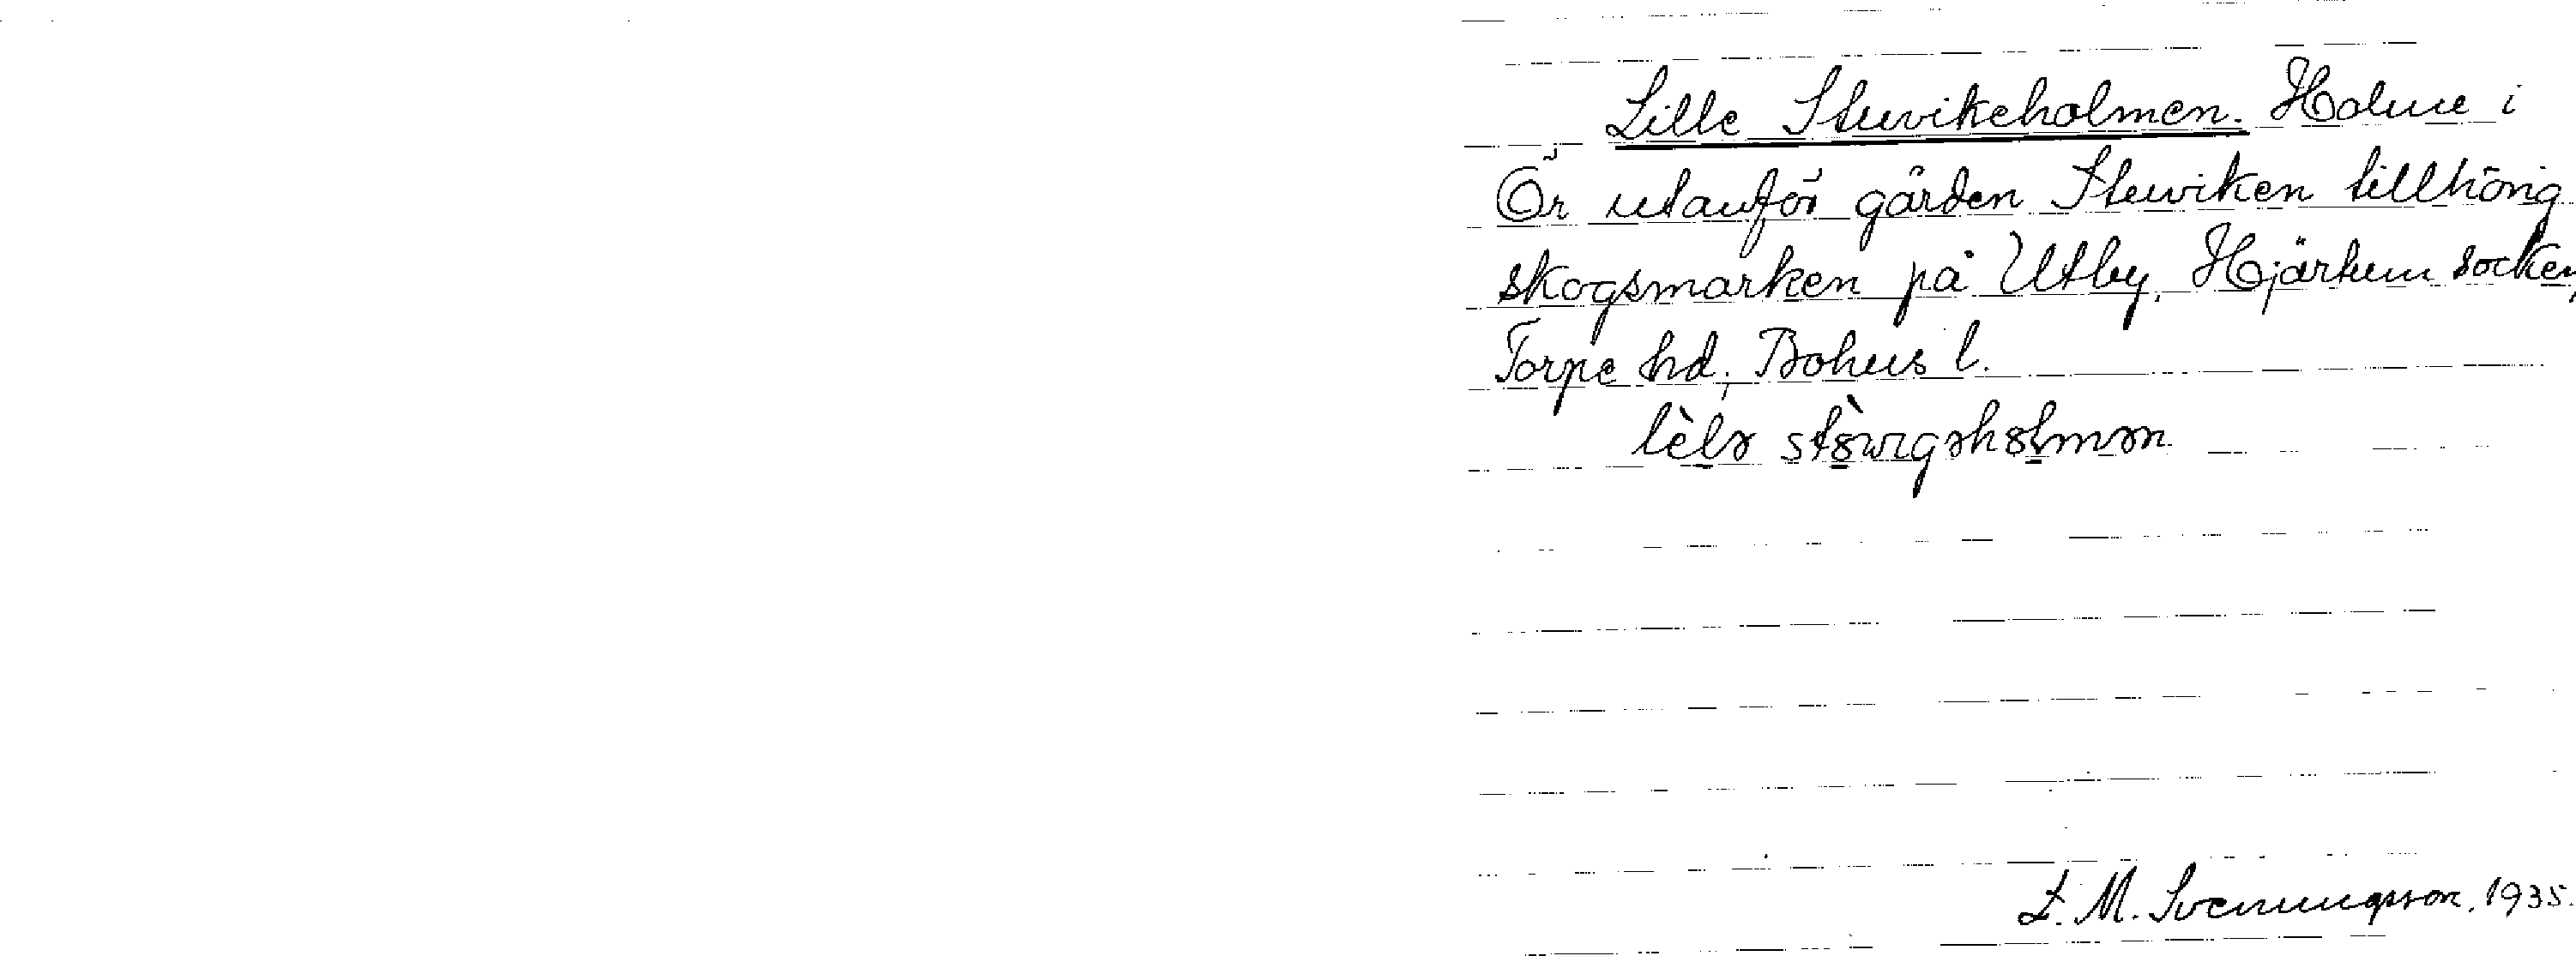 Lille Stuvikeholmen. Holme i
Ör utanför gården Stuviken tillhörig
skogsmarken på Utby, Hjärtum socken,
Torpe hd, Bohus l.
lèlɘ stȣ̀vɪgɘhȣlmɘn
L. M. Svenungsson. 1935.